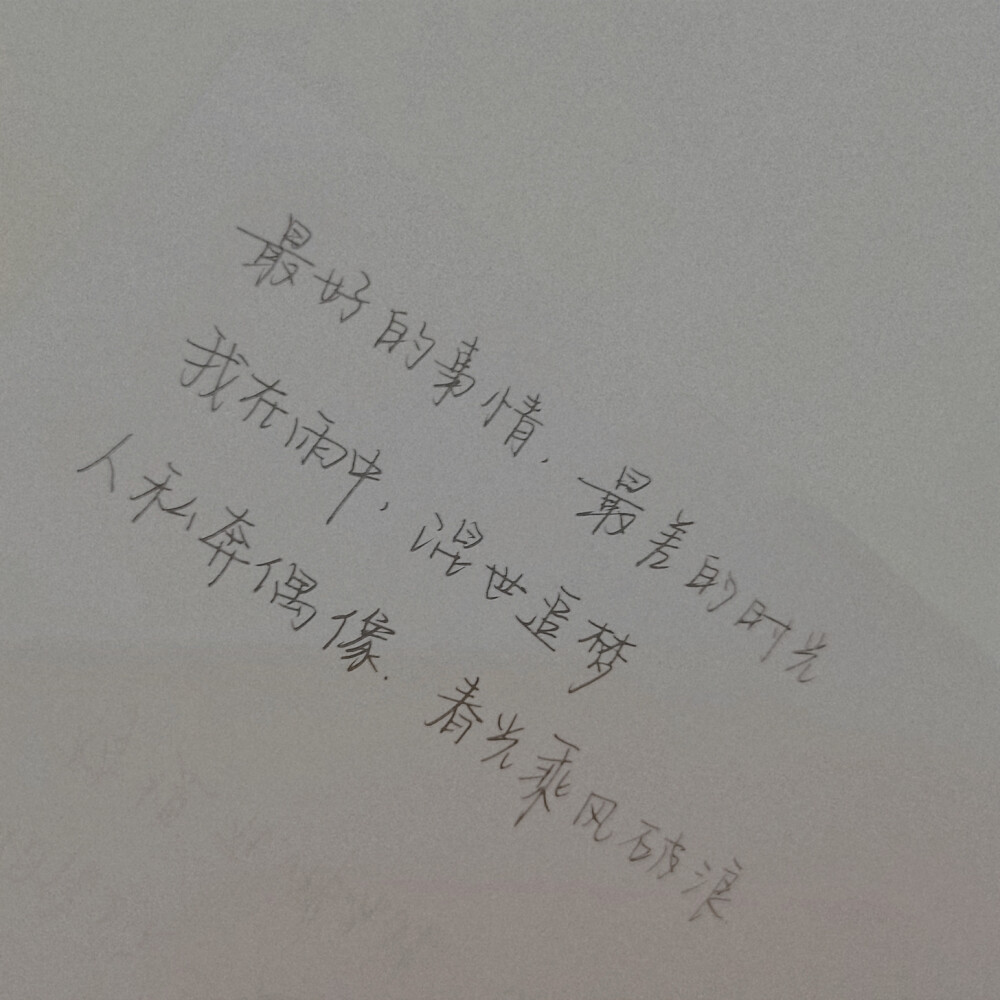 最好的事情.最差的时光
我在雨中,混世追梦
人私奔偶像.春光乘风破浪